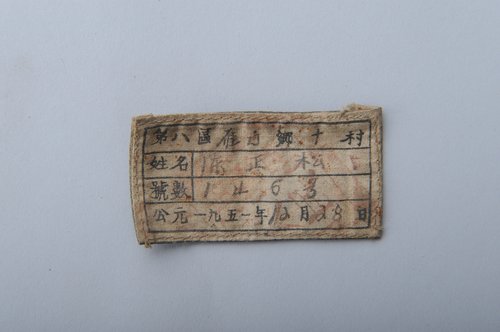 第八區雁于鄉十村
姓名 陳正松
號數 146号
公元一九五一年12月28日